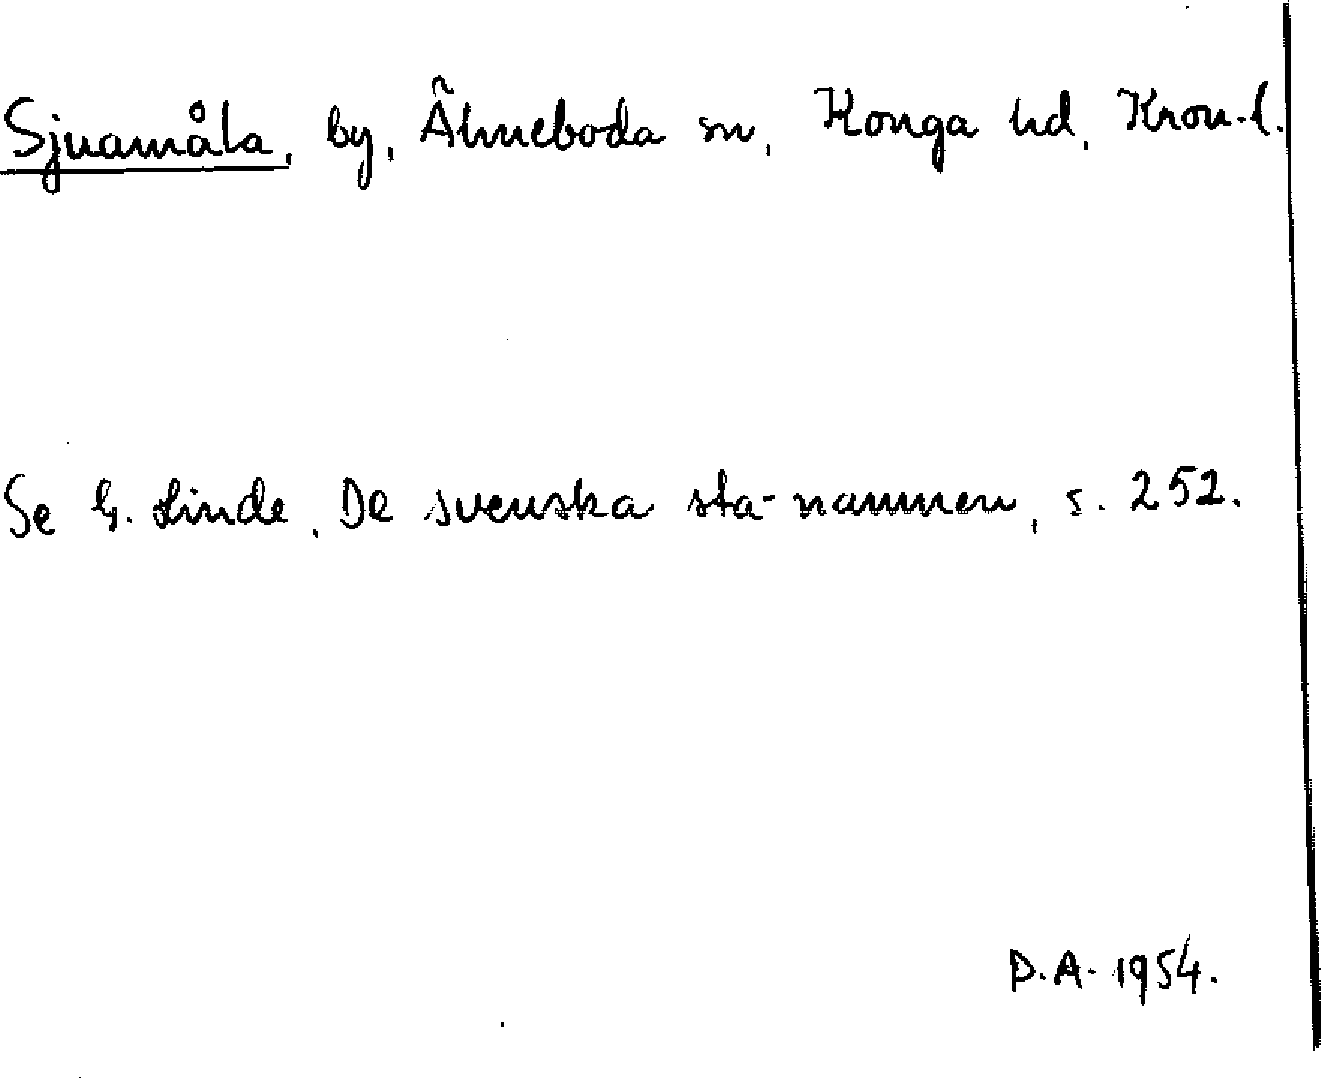 Sjuamåla, by, Älmeboda sn, Konga hd, Kron.l.
Se G. Linde, De svenska sta-namnen, s. 252.
D.A. 1954.